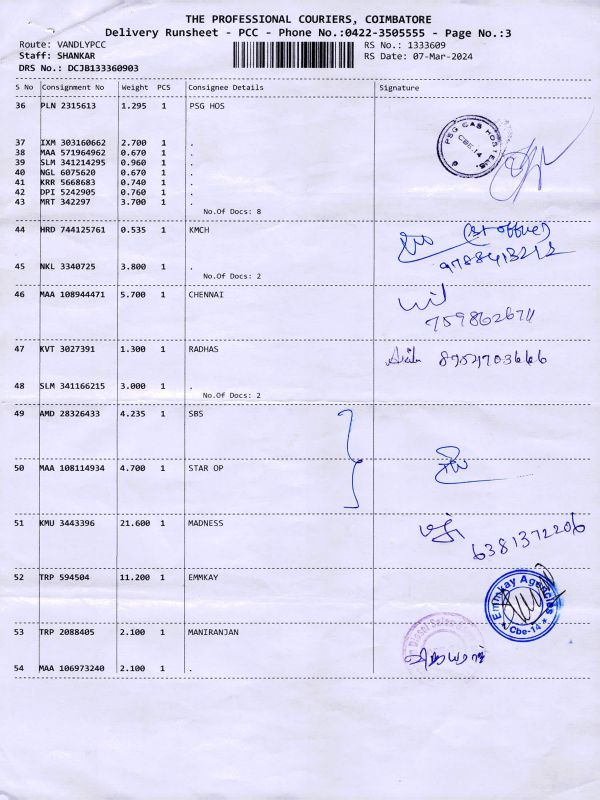 THE PROFESSIONAL COURIERS, COIMBATORE
Delivery Runsheet - PCC - Phone No.:0422-3505555 - Page No.:3
Route: VANDLYPCC
Staff: SHANKAR
DRS No.: DCJB133360903
RS No.: 1333609
RS Date: 07-Mar-2024
S No Consignment No Weight PCS Consignee Details Signature
36 PLN 2315613 1.295 1 PSG HOS
PSG CAS HOSTELS
CBE-14
37 IXM 303160662 2.700 1 .
38 MAA 571964962 0.670 1 .
39 SLM 341214295 0.960 1 .
40 NGL 6075620 0.670 1 .
41 KRR 5668683 0.740 1 .
42 DPI 5242905 0.760 1 .
43 MRT 342297 3.700 1 .
No.Of Docs: 8
44 HRD 744125761 0.535 1 KMCH
45 NKL 3340725 3.800 1 .
No.Of Docs: 2
46 MAA 108944471 5.700 1 CHENNAI
47 KVT 3027391 1.300 1 RADHAS
48 SLM 341166215 3.000 1 .
No.Of Docs: 2
49 AMD 28326433 4.235 1 SBS
50 MAA 108114934 4.700 1 STAR OP
51 KMU 3443396 21.600 1 MADNESS
6381372206
52 TRP 594504 11.200 1 EMMKAY
Emmkay Agencies
Cbe-14
53 TRP 2088405 2.100 1 MANIRANJAN
54 MAA 106973240 2.100 1 .